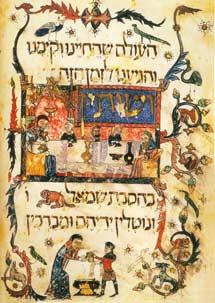 העולם שהחיינו וקימנו
והגיענו לזמן הזה
ושותין
בהסבת שמאל
ונוטלין ידיהם ומברכין